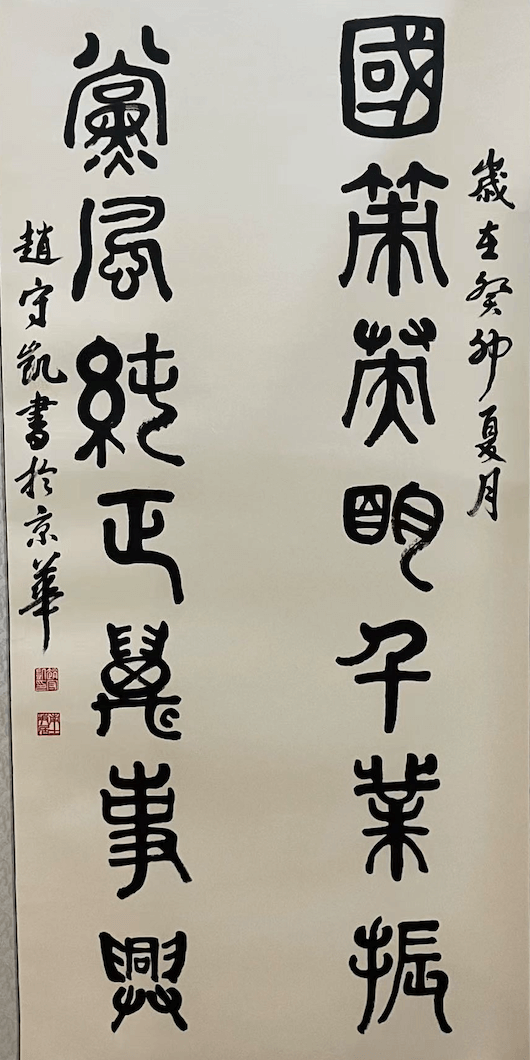 歲在癸卯夏月
國策英明千業振
黨風純正萬事興
趙守凱書於京華